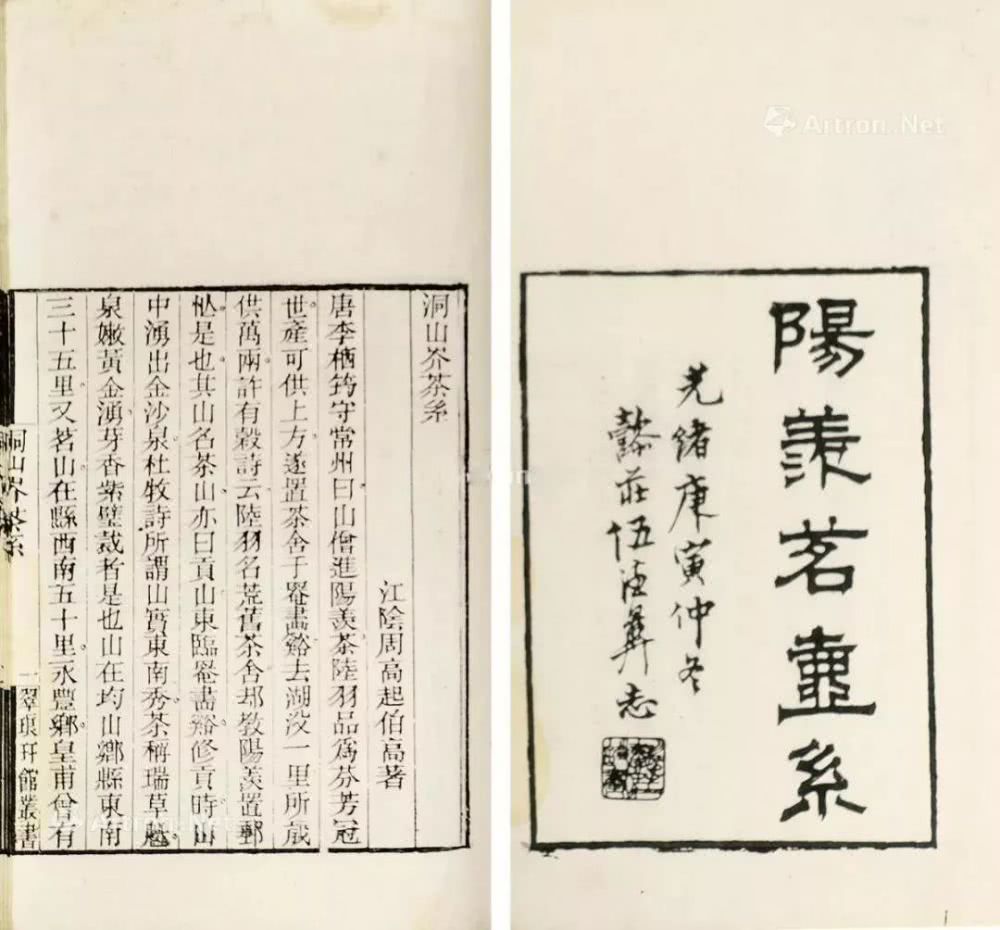 陽羨茗壷系
光緒庚寅仲冬
懿莊伍德彝志
洞山岕茶系
江陰周高起伯高著
唐李栖筠守常州曰山僧進陽羨茶陸羽品爲芬芳冠
世產可供上方遂置茶舍于罨畵谿去湖㳇一里所歲
供萬兩許有榖詩云陸羽名荒舊茶舍却教陽羨置郵
忙是也其山名茶山亦曰貢山東臨罨畵谿修貢時山
中湧出金沙泉杜牧詩所謂山實東南秀茶稱瑞草魁
泉嫩黃金湧芽香紫璧裁者是也山在均山鄉縣東南
三十五里又茗山在縣西南五十里永豐鄉皇甫曾有
洞山岕茶系
一
翠琅玕館叢書
Artron.Net